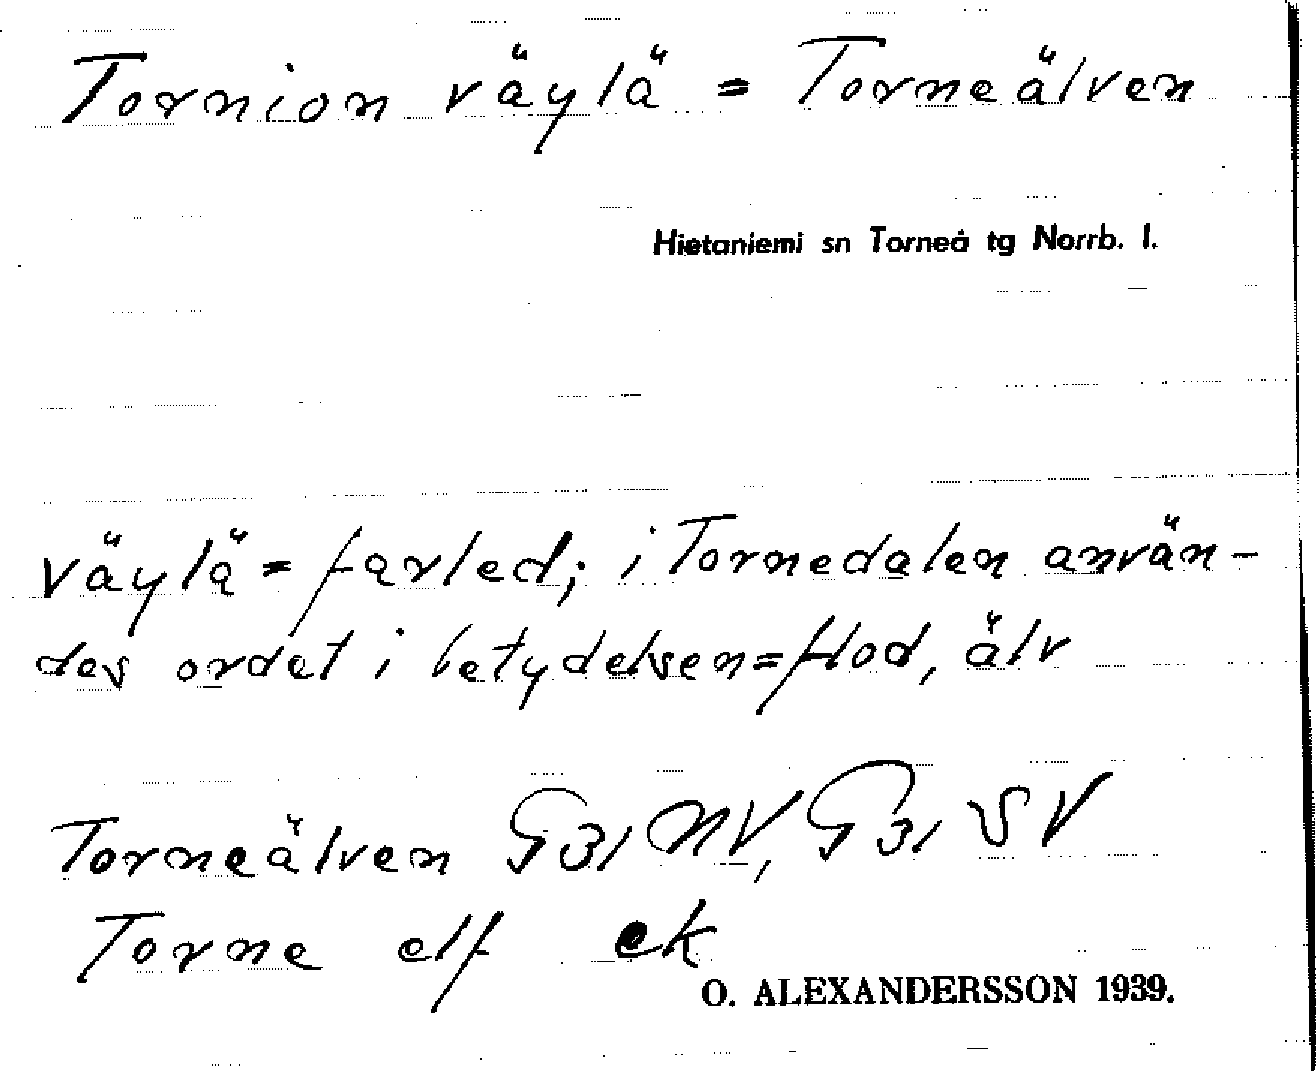 Tornion väylä = Torneälven
Hietaniemi sn Torneå tg Norrb. l.
väylä = farled; i Tornedalen använ-
des ordet i betydelsen = flod, älv
Torneälven G31 NV, G31 SV
Torne elf ek
O. ALEXANDERSSON 1939.